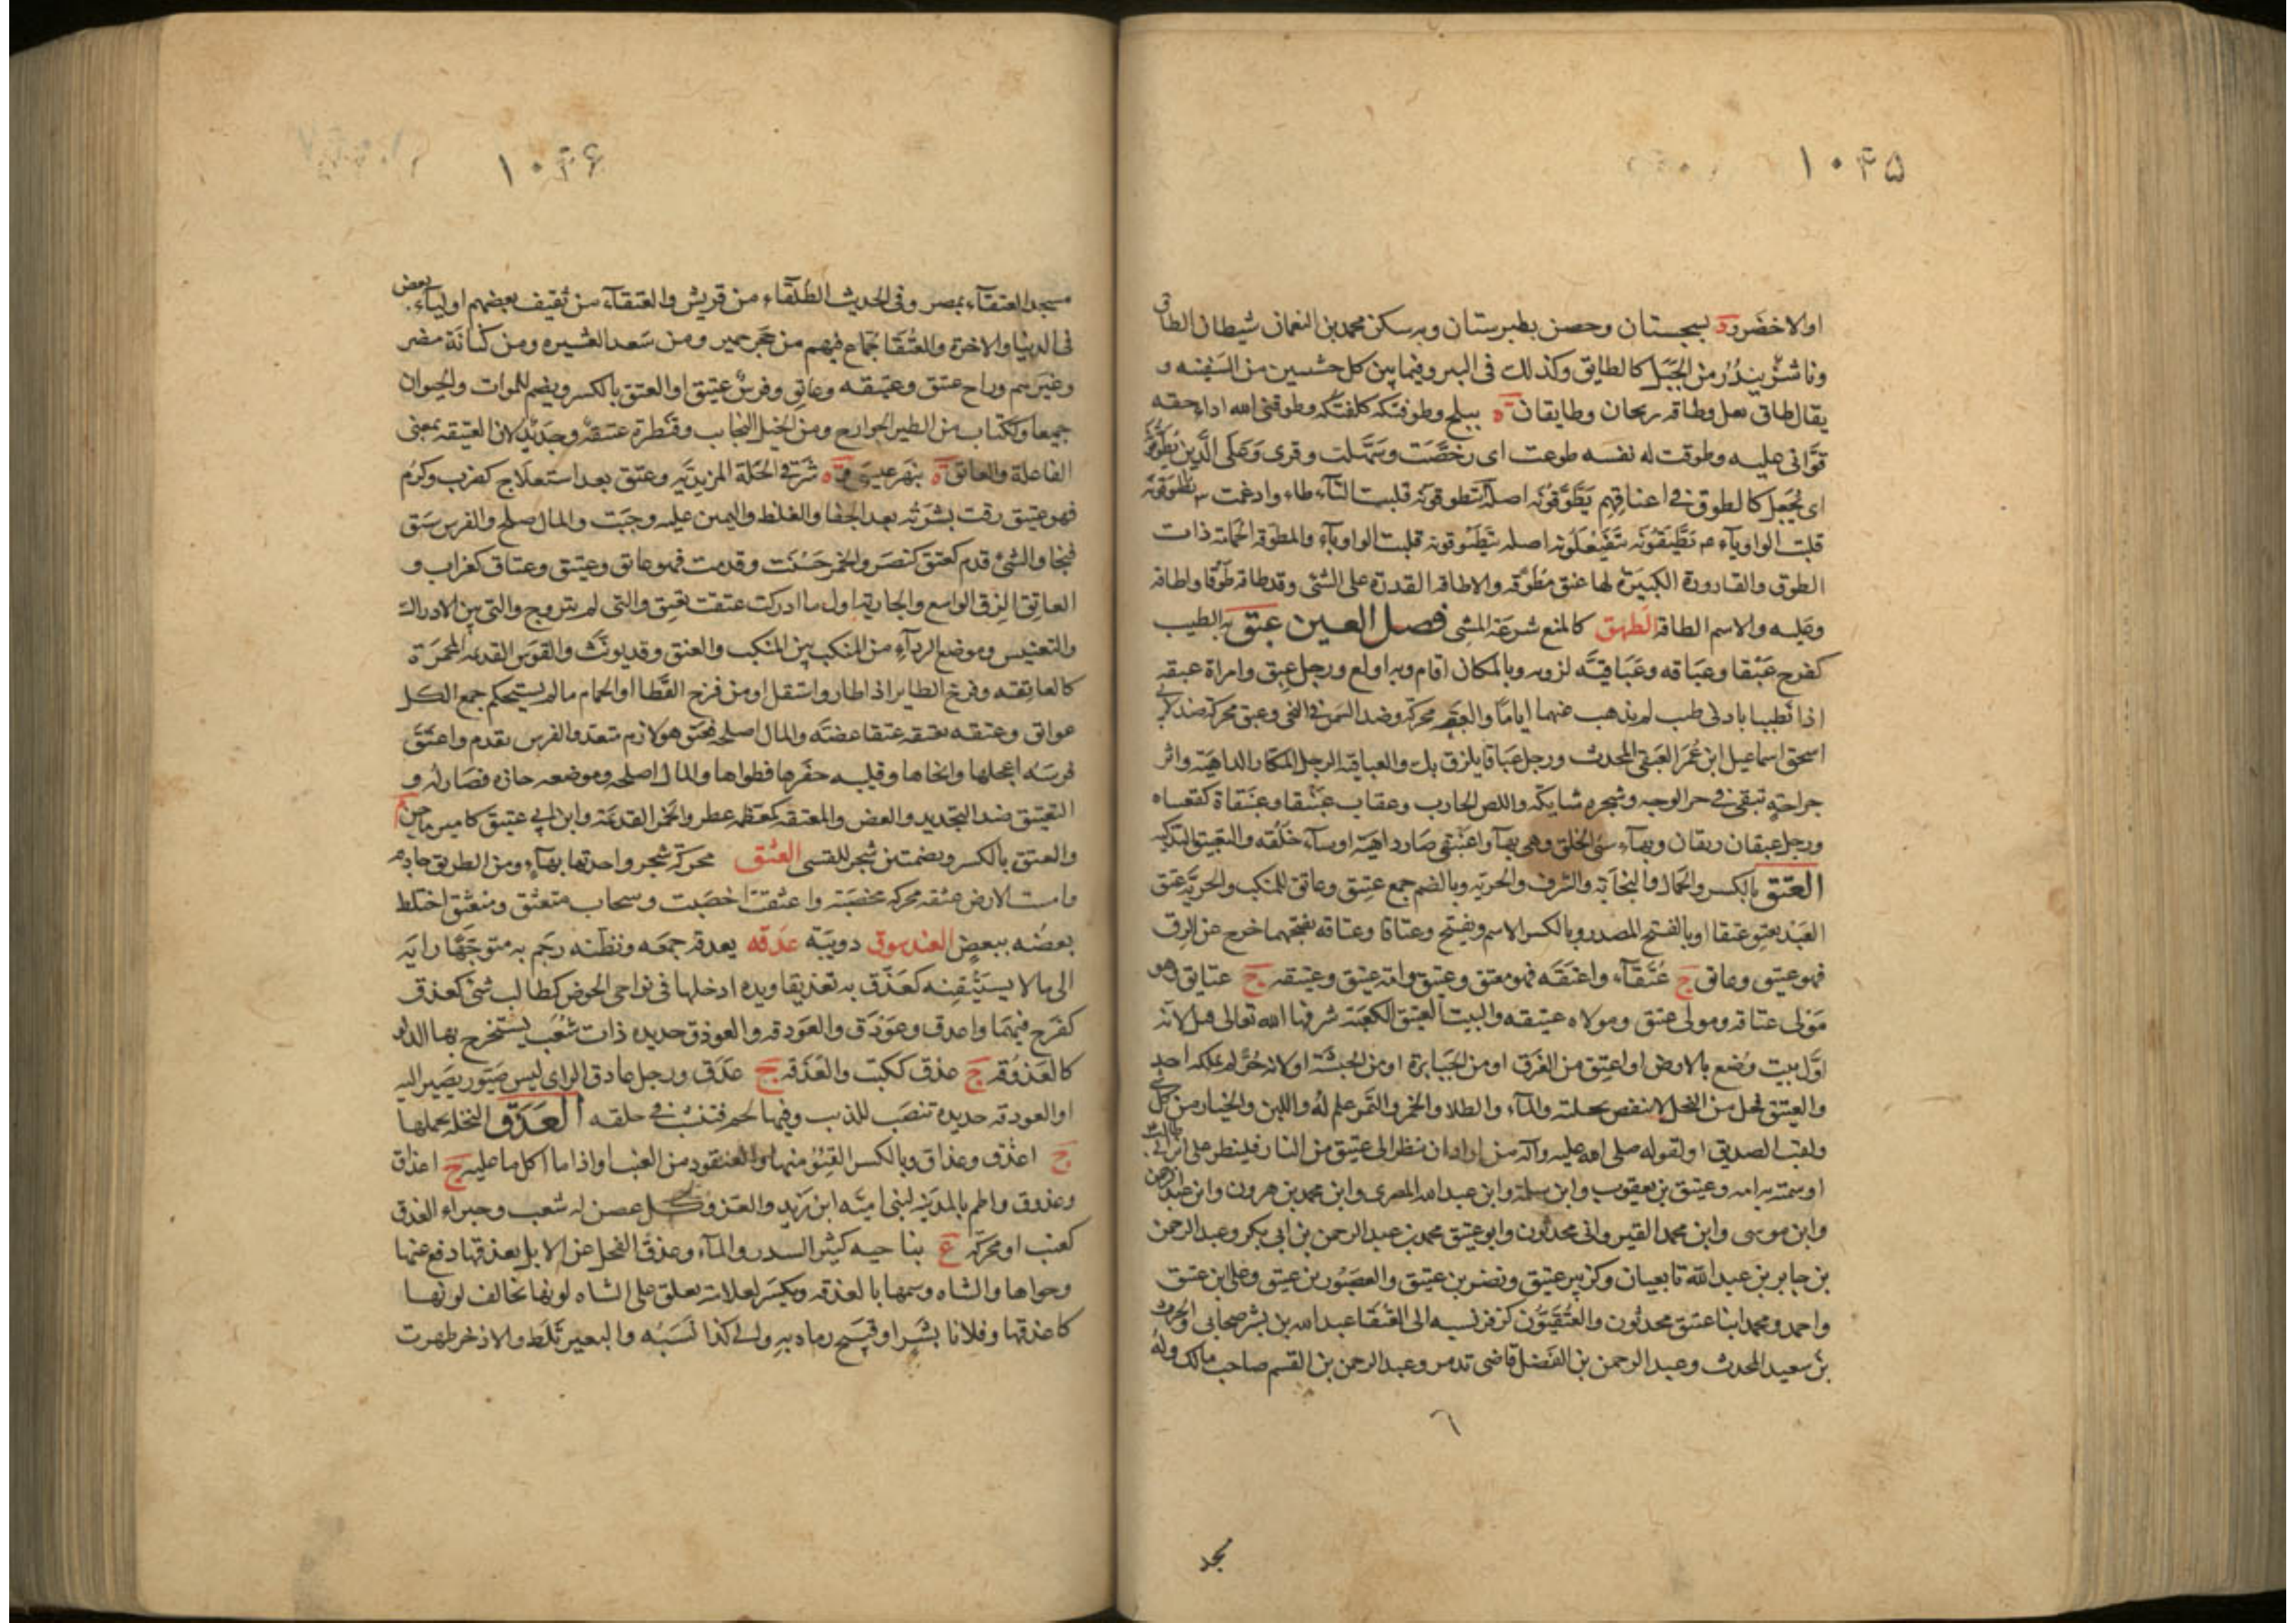 ١٠٤٥
او الاخضر و د بسجستان وحصن بطبرستان وبه سكن محمد بن النعمان شيطان الطاق
وناشز يندر من الجبل كالطايق وكذلك في البير وفيما بين كل خشبتين من السفينه و
يقال طاق نعل وطاقه ريحان وطايقان ة ببلخ وطوقتكه كلفتكه وطوقني الله اداء حقه
قواني عليه وطوقت له نفسه طوعت اى رخصت وسهلت وقرى وعلى الذين يطوقونه
اى يجعل كالطوق في اعناقهم يطوقونه اصله يتطوقونه قلبت التاء طاء وادغمت يطيقونه
قلبت الواو ياء يتفيعلونه اصله يتطيوقونه قلبت الواو ياء والمطوقه الحمامة ذات
الطوق والقارورة الكبيرة لها عنق مطوقه والاطاقه القدرة على الشئ وقد طاقه طوقا واطاقه
وعليه والاسم الطاقه الطهق كالمنع سرعة المشى فصل العين عبق به الطيب
كفرح عبقا وعباقه وعباقيه لزق به وبالمكان اقام وبه اولع ورجل عبق وامراة عبقه
اذا تطيبا بادنى طيب لم يذهب عنهما اياما والعبقه محركة وضر السمن في النحى وعبق محركة جد لابي
اسحق اسماعيل ابن عمر العبقى المحدث ورجل عباقا يلزق بك والعباقية الرجل المكار الداهية واثر
جراحة تبقى في حر الوجه وشجره شايكة واللص الخارب وعقاب عبنقا وعبنقاة كقعنباه
ورجل عبقان ربقان وبهاء سئ الخلق وهى بهاء واعبنقى صار داهية او ساء خلقه والتعبيق التذكيه
العتق بالكسر والجمال والنجابة والشرف والحرية وبالضم جمع عتيق وعاتق للمنكب والحرية عتق
العبد يعتق عتقا او بالفتح المصدر وبالكسر الاسم ويفتح وعتاقا وعتاقه بفتحهما خرج عن الرق
فهو عتيق وعاتق ج عتقاء واعتقه فهو معتق وعتيق وامة عتيق وعتيقه ج عتايق وهو
مولى عتاقه ومولى عتيق ومولاه عتيقه والبيت العتيق الكعبة شرفها الله تعالى قيل لانه
اول بيت وضع بالارض او اعتق من الغرق او من الجبابرة او من الحبشة او لانه حر لم يملكه احد
والعتيق فحل من النخل لا ينفض نخلته والماء والطلا والخمر والتمر علم له واللبن والخيار من كل شئ
ولقب الصديق او لقوله صلى الله عليه وآله من اراد ان ينظر الى عتيق من النار فلينظر على ابى بكر
او سمته به امه وعتيق بن يعقوب وابن سلمة وابن عبدالله المصرى وابن محمد بن هرون وابن عبدالرحمن
وابن موسى وابن محمد القيروانى محدثون وابو عتيق محمد بن عبدالرحمن بن ابى بكر وعبدالرحمن
بن جابر بن عبد الله تابعيان وكزبير عتيق ونصر بن عتيق والعصبور بن عتيق وعلى ابن عتيق
واحمد ومحمد ابنا عتيق محدثون والعتقيون كزفر نسبه الى العتقا عبد الله بن بشر صحابى والحرث
بن سعيد المحدث وعبد الرحمن بن الفضل قاضى تدمر وعبدالرحمن بن القسم صاحب مالك وله
٦
مجد
١٠٤٦
مسجد العتقاء بمصر وفي الحديث الطلقاء من قريش والعتقاء من ثقيف بعضهم اولياء بعض
في الدنيا والاخرة والعتقا جماع فيهم من حجر حمير ومن سعد العشيره ومن كنانة مضر
وغيرهم وراح عتيق وعتيقه وعاتق وفرس عتيق او العتق بالكسر ويضم للموات والحيوان
جميعا وككتاب من الطير الجوارح ومن الخيل النجايب وقنطرة عتيقة وجديد لان العتيقه بمعنى
الفاعلة والعاتق ة بنهر عيسى و ة شرقي الحلة المزيديه وعتق بعد استعلاج كضرب وكرم
فهو عتيق رقت بشرته بعد الجفا والغلظ واليمين عليه وجبت والمال صلح والفرس سبق
فنجا والشئ قدم كعتق كنصر والخمر حسنت وقدمت فهو عاتق وعتيق وعتاق كغراب و
العاتق الزق الواسع والجارية اول ما ادركت عتقت تعتق والتى لم يتزوج والتى بين الادراك
والتعنيس وموضع الرداء من المنكب بين المنكب والعنق وقد يونث والقوس القديمه المحمرة
كالعاتقه وفرخ الطاير اذا طار واستقل او من فرخ القطا او الحمام ما لم يستحكم جمع الكل
عواتق وعتقه يعتقه عتقا عضه والمال اصلحه فعتق هو لازم متعد والفرس تقدم واعتق
فرسه اعجلها وانجاها وقليبه حفرها فطواها والمال اصلحه وموضعه حازه فصار له و
التعتيق ضد التجديد والعض والمعتقه كمعظمه عطر والخمر القديمة وابن ابى عتيق كامير ماجن م
والعتق بالكسر وبضمتين شجر للقسى العثق محركة شجر واحدتها بهاء ومن الطريق جادته
وامست الارض عثقه محركه مخصبة واعثقت اخصبت وسحاب متعثق ومنعثق اختلط
بعضه ببعض العندسوق دويبة عدقه يعدقه جمعه وبظنه رجم به متوجها رايه
الى ما لا يستيقنه كعدق به تعديقا ويده ادخلها في نواحى الحوض كطالب شئ كعدق
كفرح فيهما واعدق وعودق والعودقه والعودق حديده ذات شعب يستخرج بها الدلو
كالعدوقه ج عدق ككتب والعدقه ج عدق ورجل عادق الراى ليس صيور يصير اليه
او العودقه حديده تنصب للذيب وفيها لحم فتنشب في حلقه العذق النخلة بحملها
ج اعذق وعذاق وبالكسر القنو منها والعنقود من العنب او اذا ما اكل ما عليه ج اعذاق
وعذوق واطم بالمدينه لبنى امية ابن زيد والعز وكل غصن له شعب وخبراء العذق
كعنب او محركة ع بناحيه كثير السدر والماء وعذق الفحل عن الابل يعذقها دفع عنها
وحواها والشاه وسمها بالعذقه ويكسر لعلامة يعلق على الشاه لونها تخالف لونها
كاعذقها وفلانا بشر او قبيح رماه به والى كذا نسبه والبعير ثلط والاذخر ظهرت